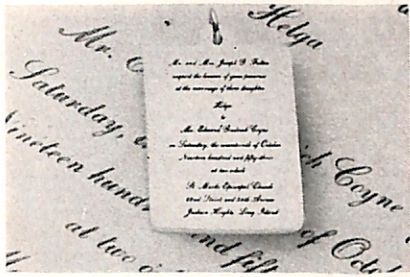 Mr. C
Helga
Saturday,
ich Coyne
Nineteen hundr
nd fift
of Octo
at two o
Mr. and Mrs. Joseph D.
request the honour of your presence
at the marriage of their daughter
Helga
to
Mr. Edward Coyne
on Saturday, the of October
Nineteen hundred and fifty
at two o'clock
St. Marks Episcopal Church
82nd Street and 34th Avenue
Jackson Heights, Long Island